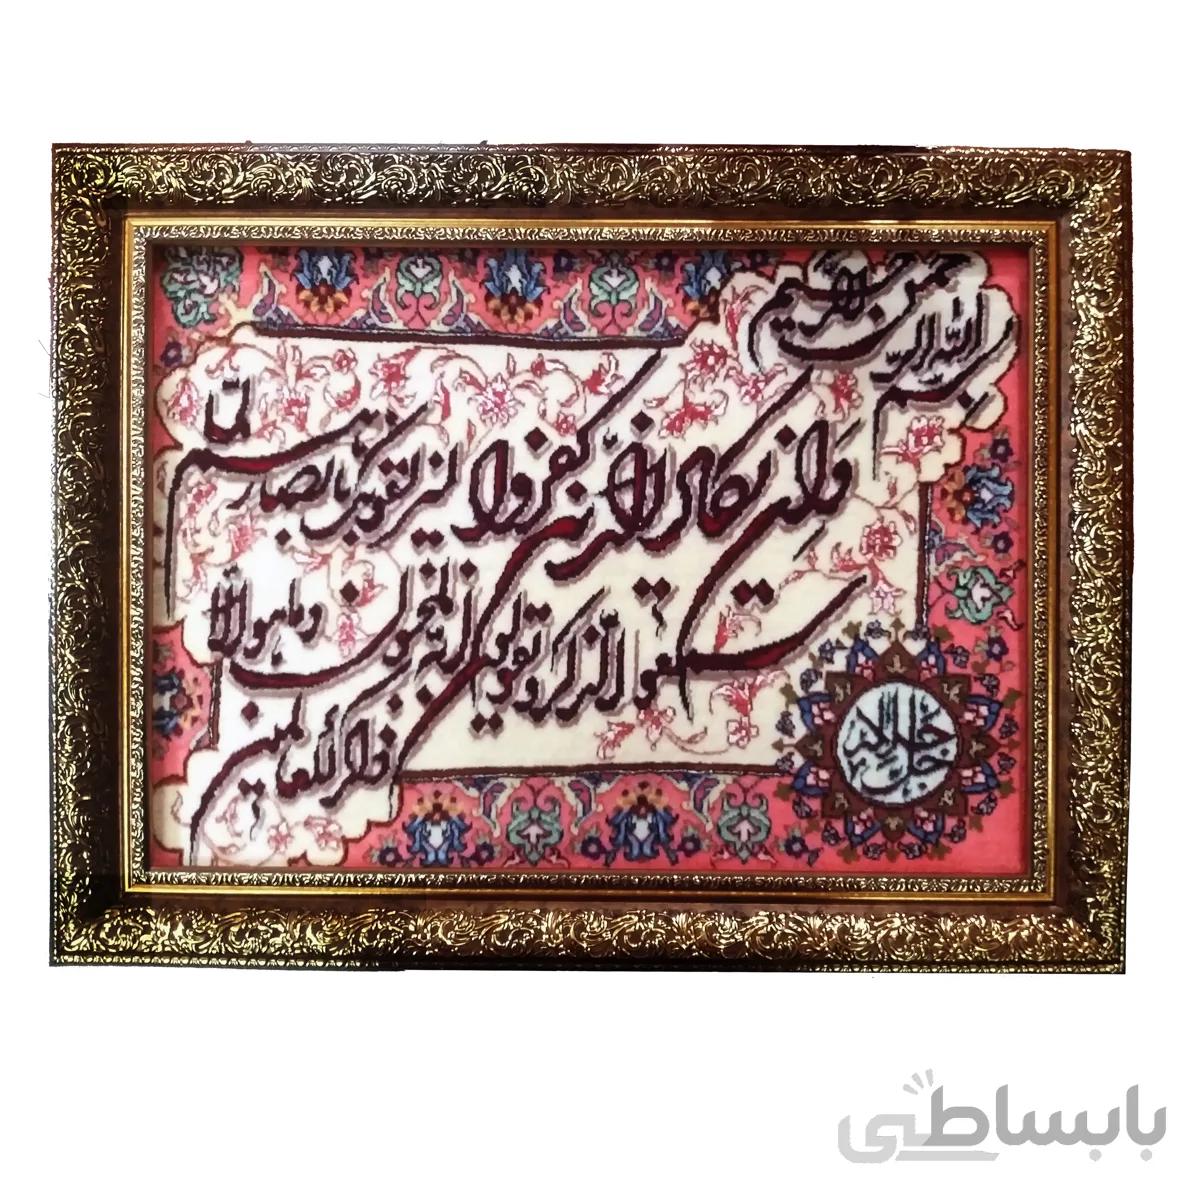 بسم الله الرحمن الرحیم
وان یکاد الذین کفروا لیزلقونک بابصارهم لما
سمعوا الذکر و یقولون انه لمجنون وما هو الا
ذکر للعالمین
جل جلاله
بابساطی